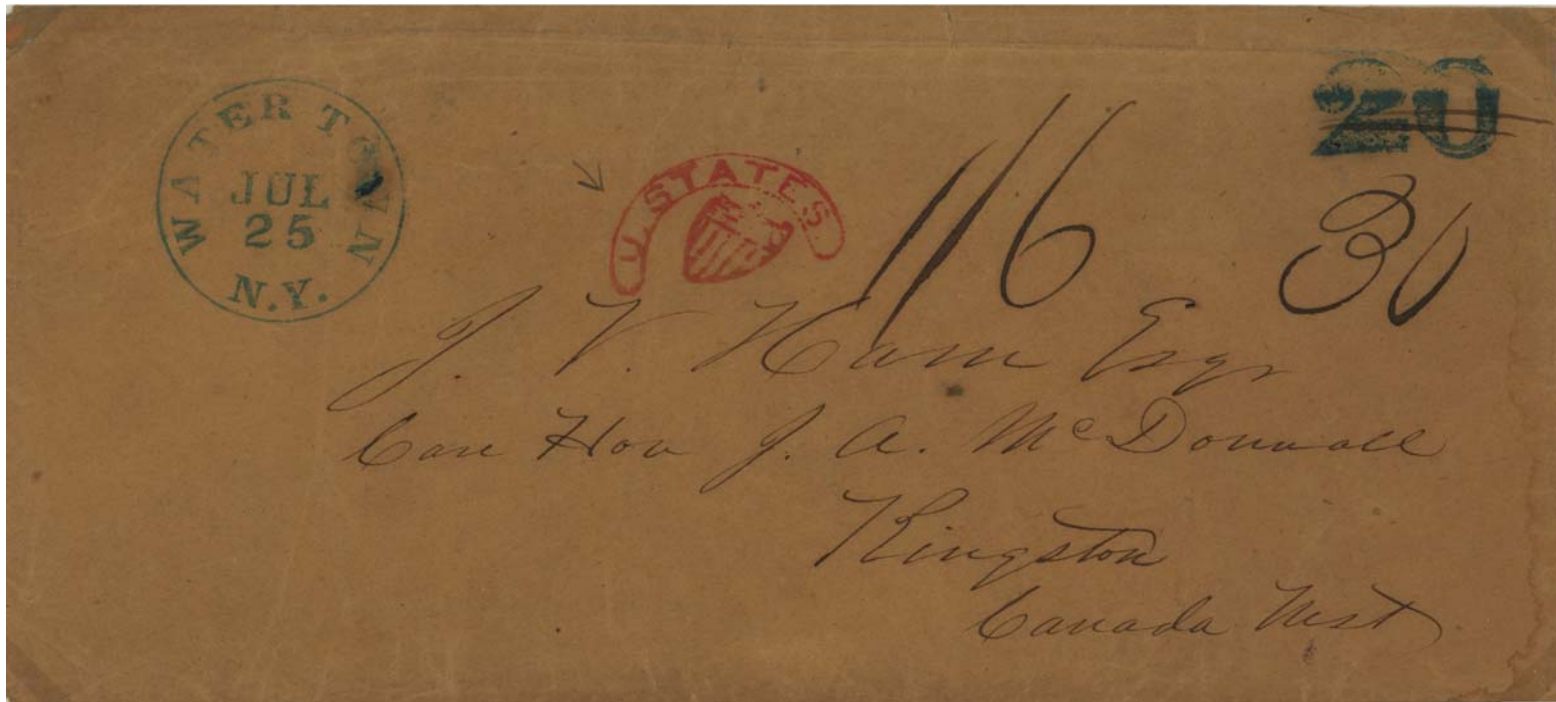 WATERTOWN
JUL
25
N.Y.
U. STATES
1/6
20
30
J. V. Ham Esqr
Care Hon J. A. McDonnall
Kingston
Canada West